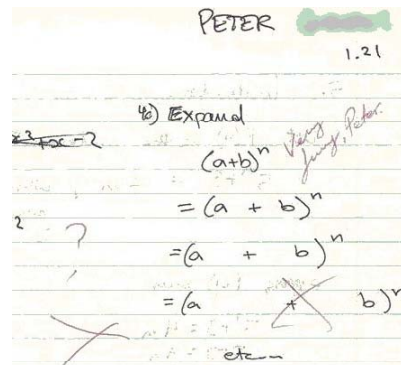 PETER
1.21
4c) Expand
x³+x-2
Very funny, Peter.
(a+b)ⁿ
= (a + b)ⁿ
2
?
=(a + b)ⁿ
=(a + b)ⁿ
etc...